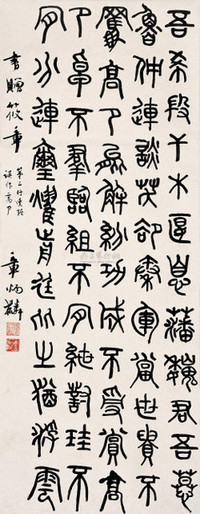 吾希段干木偃息藩魏君吾慕
魯仲連談笑卻秦軍當世貴不
羈高卩能解紛功成不受賞高
卩卓不羣臨組不肯紲對珪不
肯分連璽燿前庭比之猶浮雲
書贈筱章
誤作高卩
章炳麟